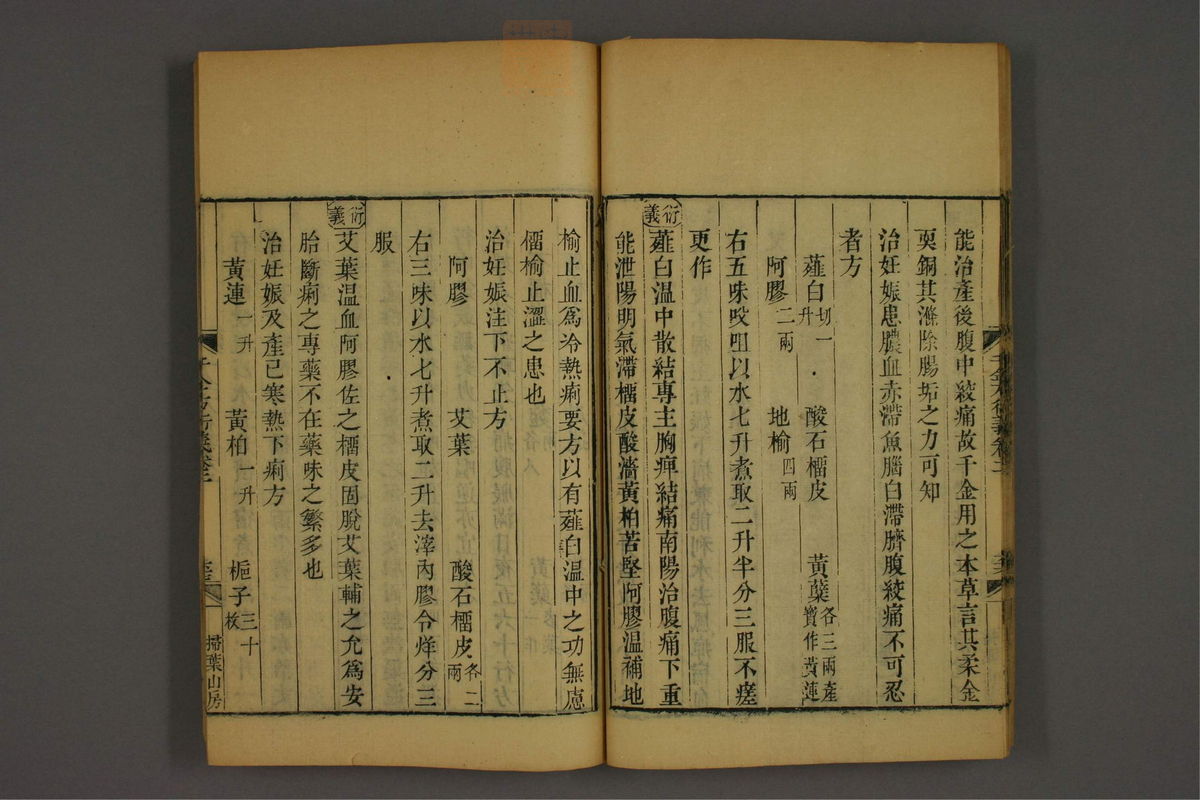 能治產後腹中絞痛故千金用之本草言其柔金
耎銅其滌除腸垢之力可知
治妊娠患膿血赤滯魚腦白滯臍腹絞痛不可忍
者方
薤白切一升 酸石榴皮 黃蘗各三兩產寶作黃連
阿膠二兩 地榆四兩
右五味㕮咀以水七升煮取二升半分三服不瘥
更作
衍義
薤白溫中散結專主胸痺結痛南陽治腹痛下重
能泄陽明氣滯榴皮酸濇黃柏苦堅阿膠溫補地
榆止血爲冷熱痢要方以有薤白溫中之功無慮
榴榆止澀之患也
治妊娠注下不止方
阿膠 艾葉 酸石榴皮各二兩
右三味以水七升煮取二升去滓內膠令烊分三
服
衍義
艾葉溫血阿膠佐之榴皮固脫艾葉輔之允爲安
胎斷痢之專藥不在藥味之繁多也
治妊娠及產已寒熱下痢方
黃連一升 黃柏一升 梔子三十枚
千金方衍義卷二
掃葉山房